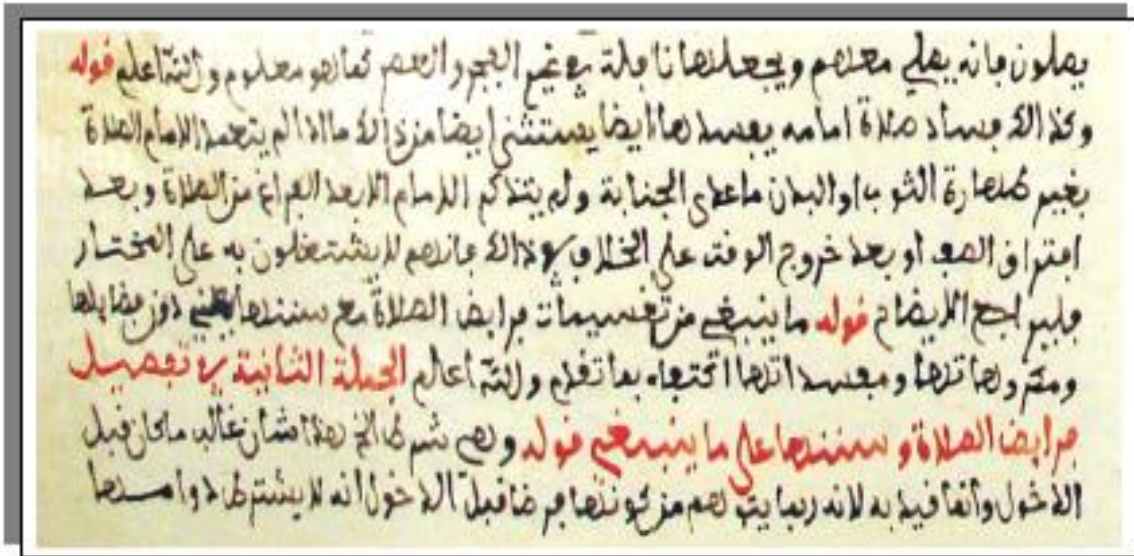 يصلون فإنه يصلي معهم ويجعلها نافلة في غير الفجر والعصر كما هو معلوم والله أعلم قوله
وكذالك فساد صلاة امامه يفسدها ايضا يستثنى ايضا من ذالك ما اذا لم يتعمد الامام الصلاة
بغير طهارة الثوب او البدن ما عدى الجنابة ولم يتذكر الامام الا بعد الفراغ من الصلاة وبعد
افتراق الصف او بعد خروج الوقت على الخلاف في ذالك فإنهم لا يشتغلون به على المختار
فليراجع الايضاح قوله ما ينبغي من تقسيمات فرايض الصلاة مع سننها يعني دون فضايلها
ومكروهاتها ومفسداتها اكتفاء بما تقدم والله أعلم الجملة الثانية في تفصيل
فرايض الصلاة وسننها على ما ينبغي قوله وهي شرط الخ هذا شأن غالب ما كان قبل
الدخول وأنما قيد به لانه ربما يتوهم من كونها فرضا قبل الدخول أنه لا يشترط دوامها